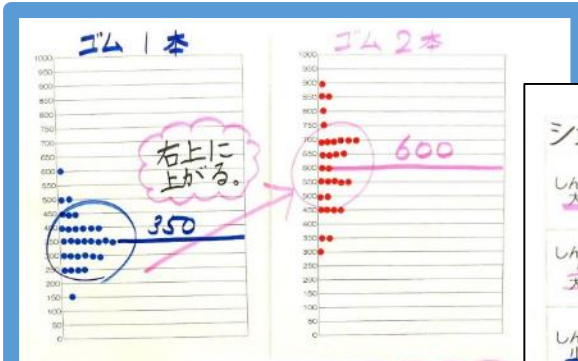 ゴム1本
ゴム2本
1000
950
900
850
800
750
700
650
600
550
500
450
400
350
300
250
200
150
100
50
0
1000
950
900
850
800
750
700
650
600
550
500
450
400
350
300
250
200
150
100
50
0
右上に
上がる。
350
600